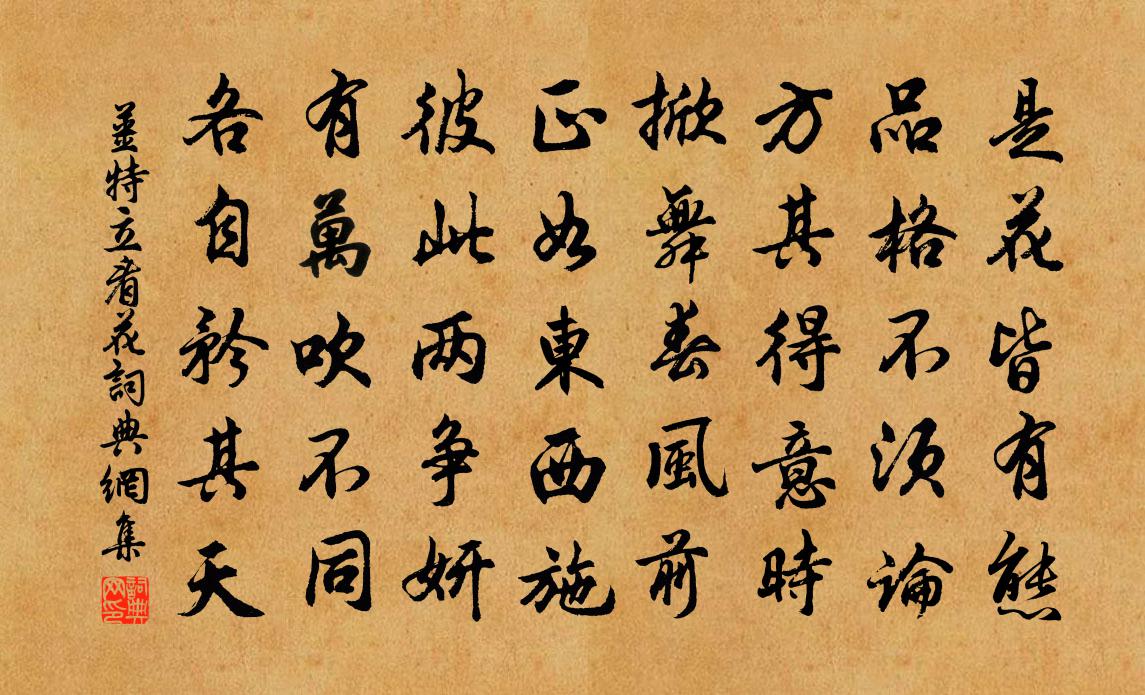 是花皆有態
品格不須論
方其得意時
掀舞春風前
正如東西施
彼此两争妍
有萬吹不同
各自矜其天
薑特立看花詞典網集
詞典网印